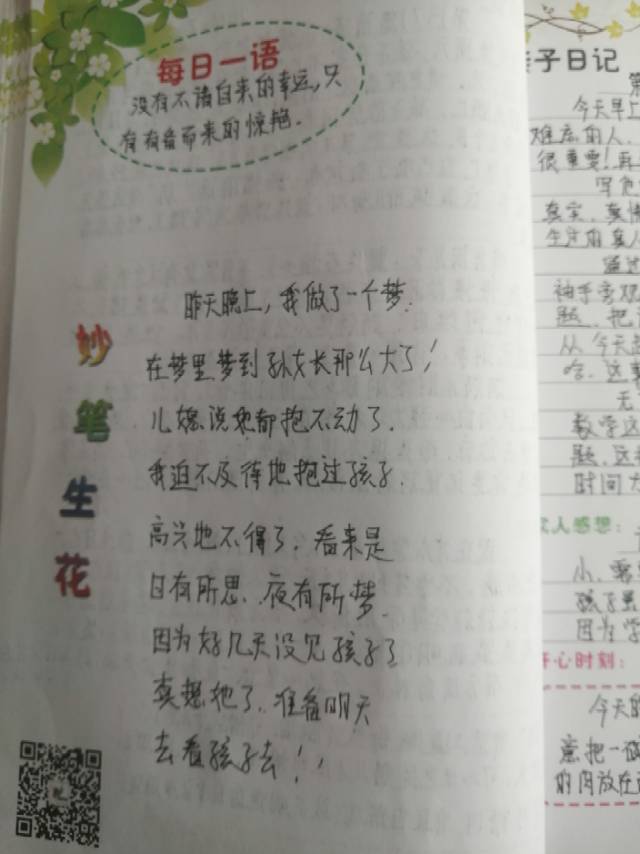 每日一语
没有不请自来的幸运,只
有有备而来的惊艳.
妙笔生花
昨天晚上,我做了一个梦.
在梦里梦到孙女长那么大了!
儿媳说她都抱不动了.
我迫不及待地抱过孩子.
高兴地不得了,看来是
日有所思,夜有所梦.
因为好几天没见孩子了
真想她了,准备明天
去看孩子去!!
子日记
今天早上
难底的人,
很重要!再
写
真实,真情
生活的真人
通过
袖手旁观
题,把
从今天
哈,这
无
教学这
题,这
时间
人感想:
小,
孩子
因为学
开心时刻:
今天的
意把一碗
的肉放在